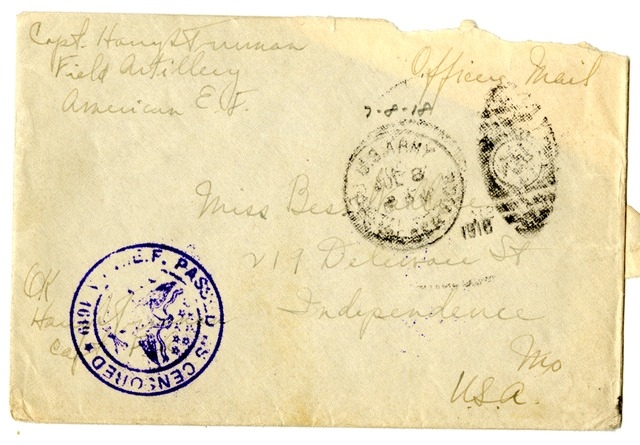 Capt. Harry S Truman
Field Artillery
American E.F.
Officers Mail
7-8-18
U.S. ARMY
8
1918
Miss Bess
219 Delaware St
Independence
Mo
U.S.A.
A.E.F. PASSED AS CENSORED
1619
OK
Capt